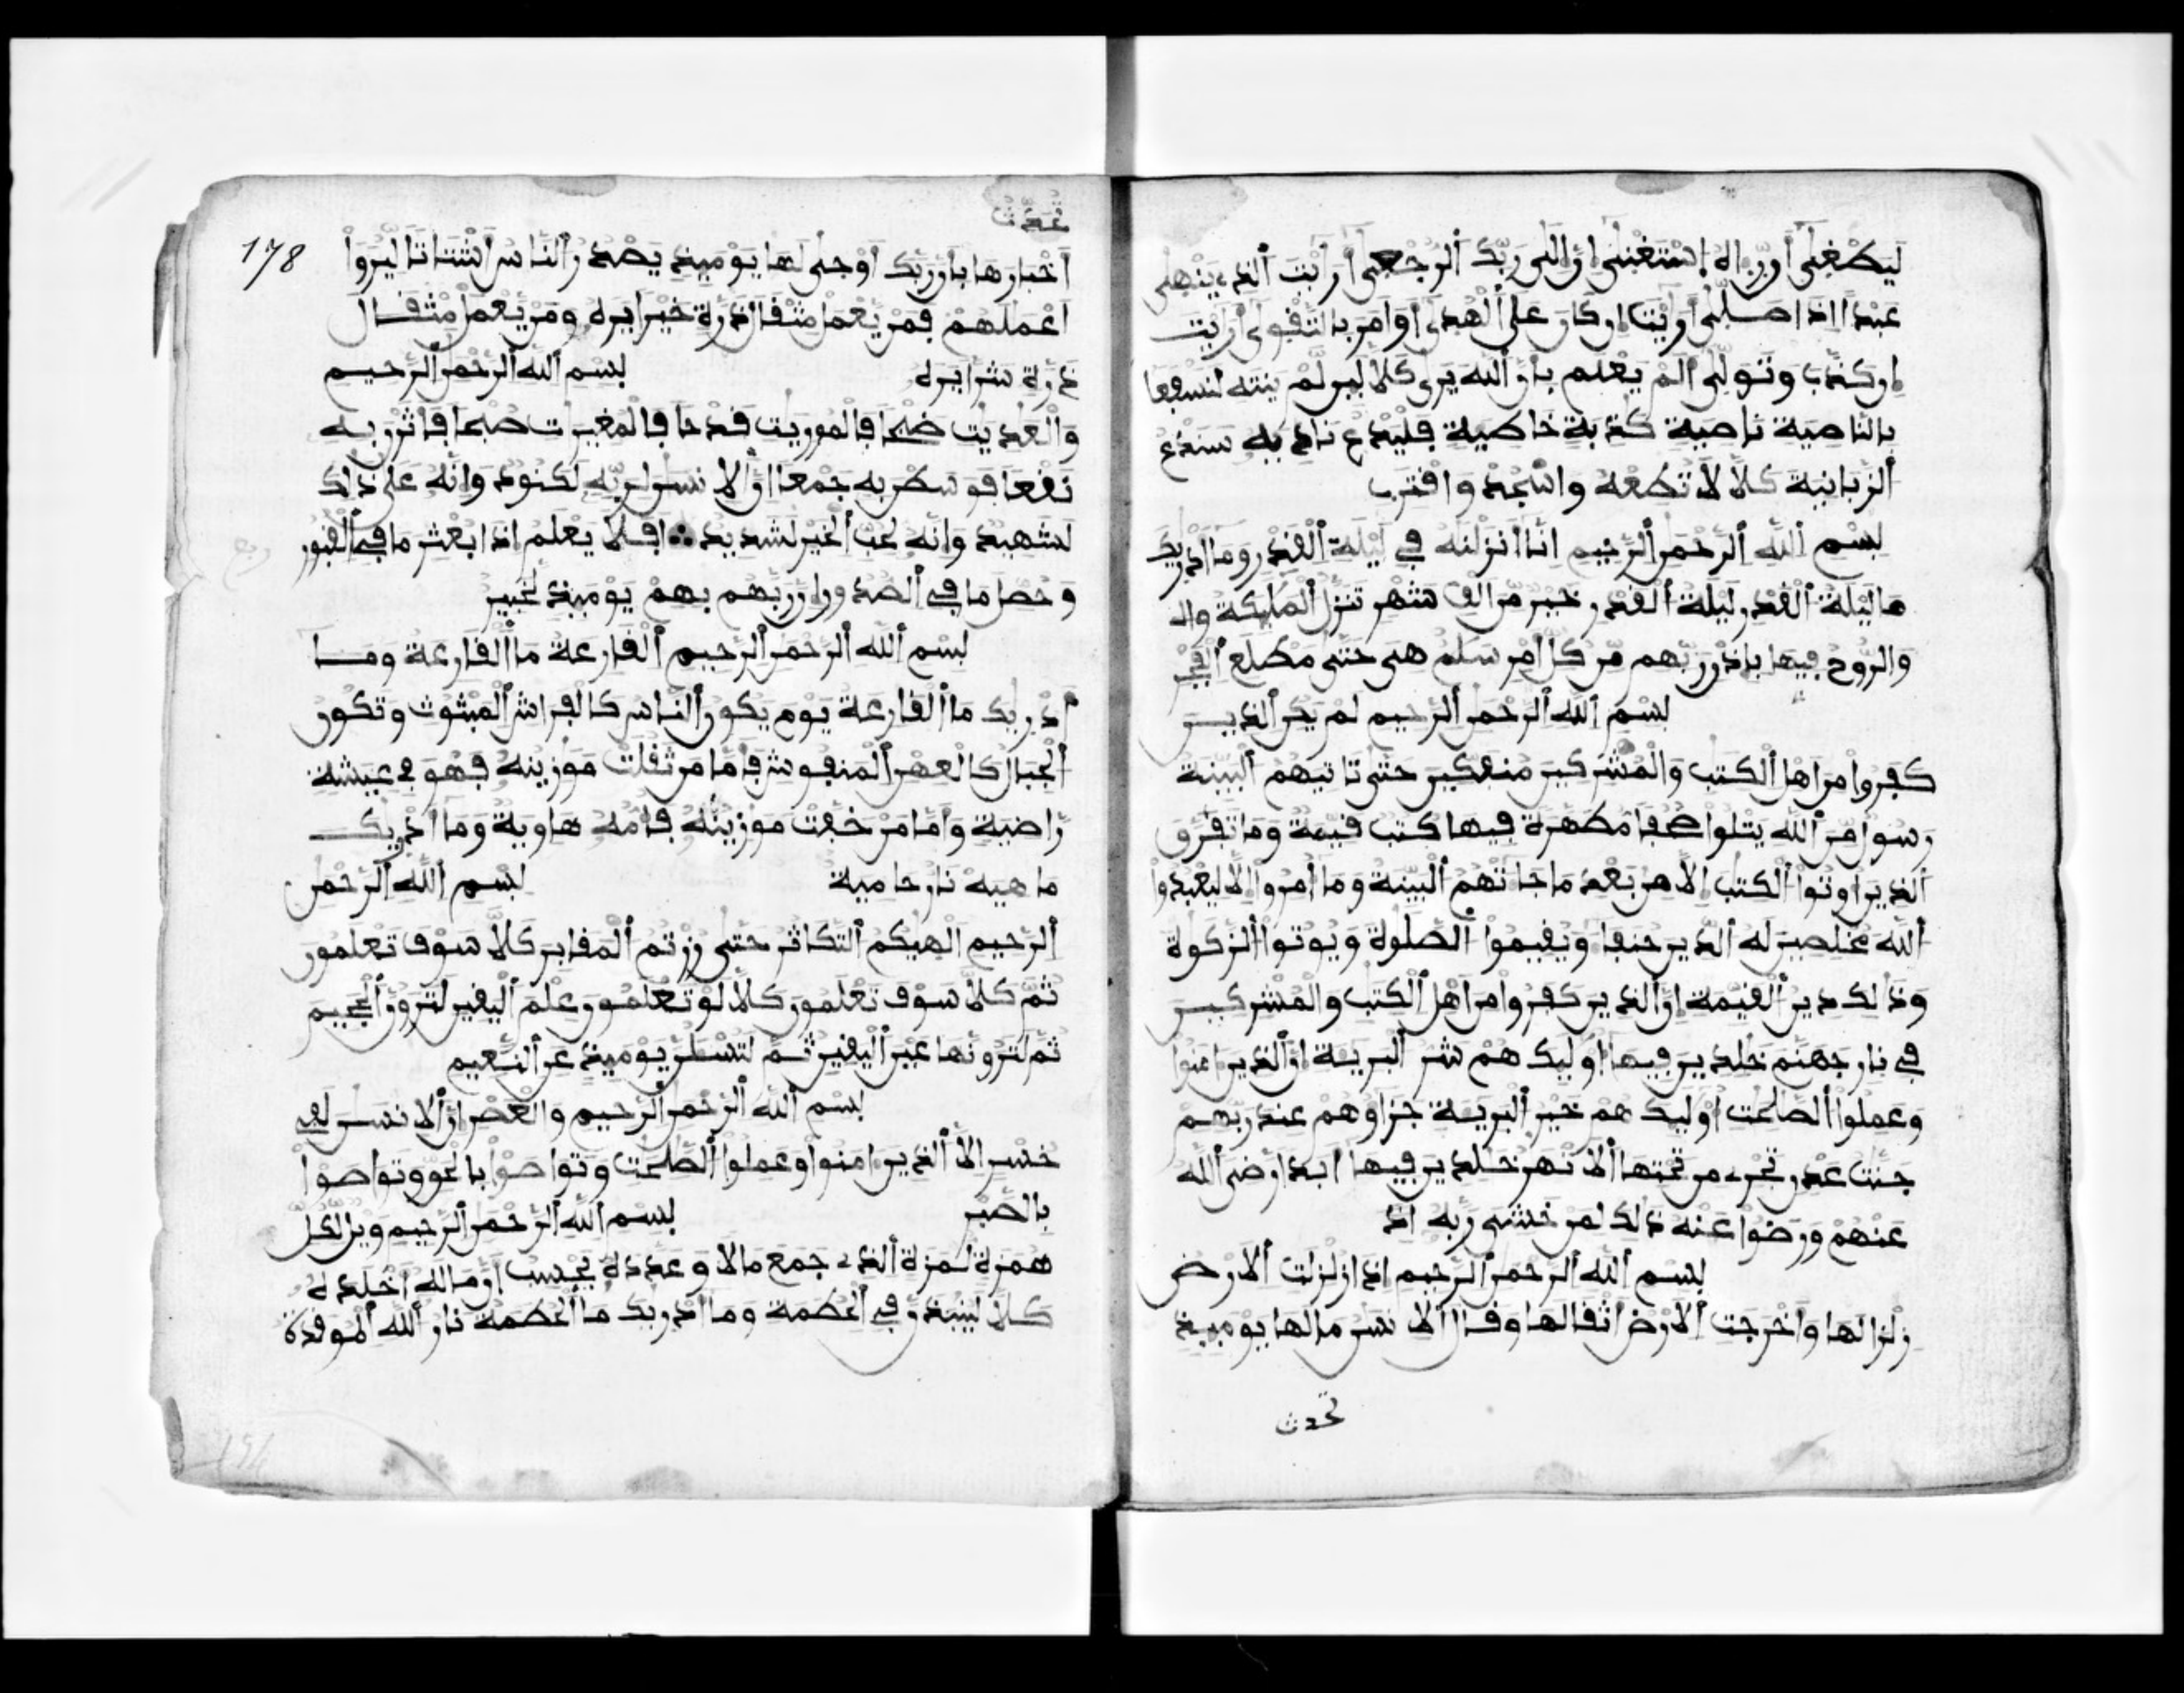 ليطغى أن رءاه استغنى إن إلى ربك الرجعى أرايت الذي ينهى
عبدا اذا صلى أرايت إن كان على الهدى أو امر بالتقوى أرايت
إن كذب وتولى ألم يعلم بأن الله يرى كلا لين لم ينته لنسفعا
بالناصية ناصية كذبة خاطية فليدع ناديه سندع
الزبانية كلا لا تطعه واسجد واقترب
بسم الله الرحمن الرحيم انا انزلنه في ليلة القدر وما ادريك
ما ليلة القدر ليلة القدر خير من الف شهر تنزل المليكة وال
والروح فيها بإذن ربهم من كل امر سلم هى حتى مطلع الفجر
بسم الله الرحمن الرحيم لم يكن الذين
كفروا من اهل الكتب والمشركين منفكين حتى تاتيهم البينة
رسول من الله يتلوا صحفا مطهرة فيها كتب قيمة وما تفرق
الذين اوتوا الكتب الا من بعد ما جاتهم البينة وما امروا الا ليعبدوا
الله مخلصين له الدين حنفا ويقيموا الصلوة ويوتوا الزكوة
وذالك دين القيمة ان الذين كفروا من اهل الكتب والمشركين
في نار جهنم خلدين فيها اوليك هم شر البرية ان الذين امنوا
وعملوا الصلحت اوليك هم خير البرية جزاؤهم عند ربهم
جنت عدن تجرى من تحتها الانهر خلدين فيها ابدا رضى الله
عنهم ورضوا عنه ذلك لمن خشى ربه اذ
بسم الله الرحمن الرحيم اذا زلزلت الارض
زلزالها واخرجت الارض اثقالها وقال الانسن مالها يوميذ
تحدث
178
تحدث
أخبارها بأن ربك أوحى لها يوميذ يصدر الناس اشتاتا ليروا
اعملهم فمن يعمل مثقال ذرة خيرا يره ومن يعمل مثقال
ذرة شرا يره بسم الله الرحمن الرحيم
والعديت ضبحا فالموريت قدحا فالمغيرت صبحا فاثرن به
نقعا فوسطن به جمعا ان الانسن لربه لكنود وانه على ذلك
لشهيد وانه لحب الخير لشديد افلا يعلم اذا بعثر ما في القبور
وحصل ما في الصدور ان ربهم بهم يوميذ لخبير
بسم الله الرحمن الرحيم القارعة ما القارعة وما
أدريك ما القارعة يوم يكون الناس كالفراش المبثوث وتكون
الجبال كالعهن المنفوش فأما من ثقلت موزينه فهو في عيشة
راضية وأما من خفت موزينه فأمه هاوية وما ادريك
ما هيه نار حامية بسم الله الرحمن
الرحيم الهيكم التكاثر حتى زرتم المقابر كلا سوف تعلمون
ثم كلا سوف تعلمون كلا لو تعلمون علم اليقين لترون الجحيم
ثم لترونها عين اليقين ثم لتسلن يوميذ عن النعيم
بسم الله الرحمن الرحيم والعصر ان الانسن لفي
خسر الا الذين امنوا وعملوا الصلحت وتواصوا بالحق وتواصوا
بالصبر بسم الله الرحمن الرحيم ويل لكل
همزة لمزة الذي جمع مالا وعدده يحسب أن ماله اخلده
كلا لينبذن في الحطمة وما ادريك ما الحطمة نار الله الموقدة